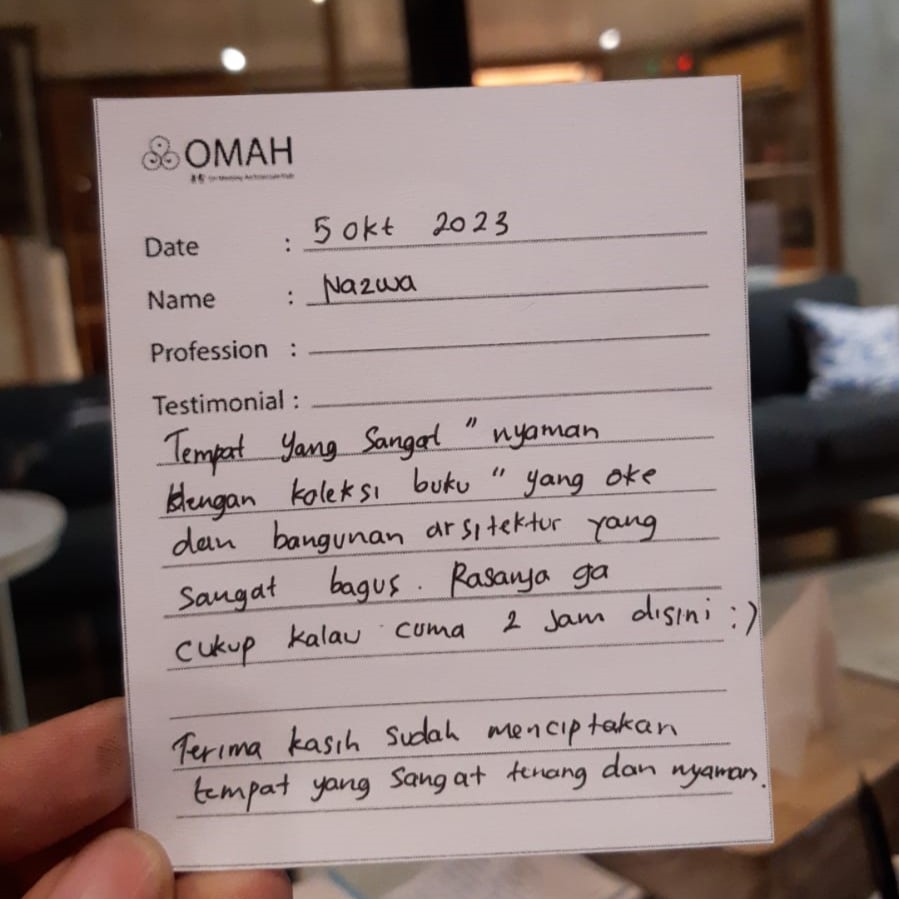 OMAH
Date : 5 Okt 2023
Name : Nazwa
Profession :
Testimonial :
Tempat yang sangat " nyaman
dengan koleksi buku " yang oke
dan bangunan arsitektur yang
sangat bagus. Rasanya ga
cukup kalau cuma 2 jam disini :)
Terima kasih sudah menciptakan
tempat yang sangat tenang dan nyaman.